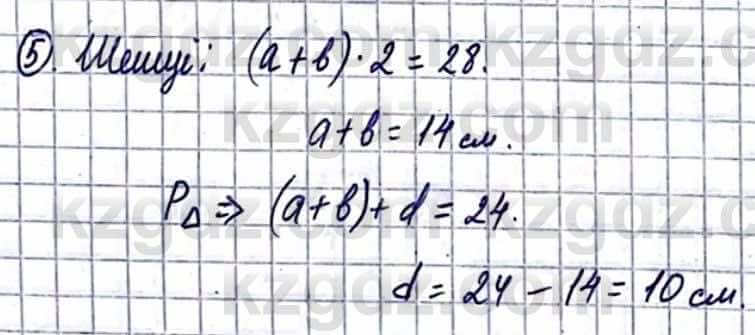 5. Шешуі: (a+b)·2=28.
a+b=14 см.
P△⇒ (a+b)+d=24.
d=24-14=10 см.
kzgdz.com kzgdz.com
kzgdz.com
kzgdz.com kzgdz.com
kzgdz.com